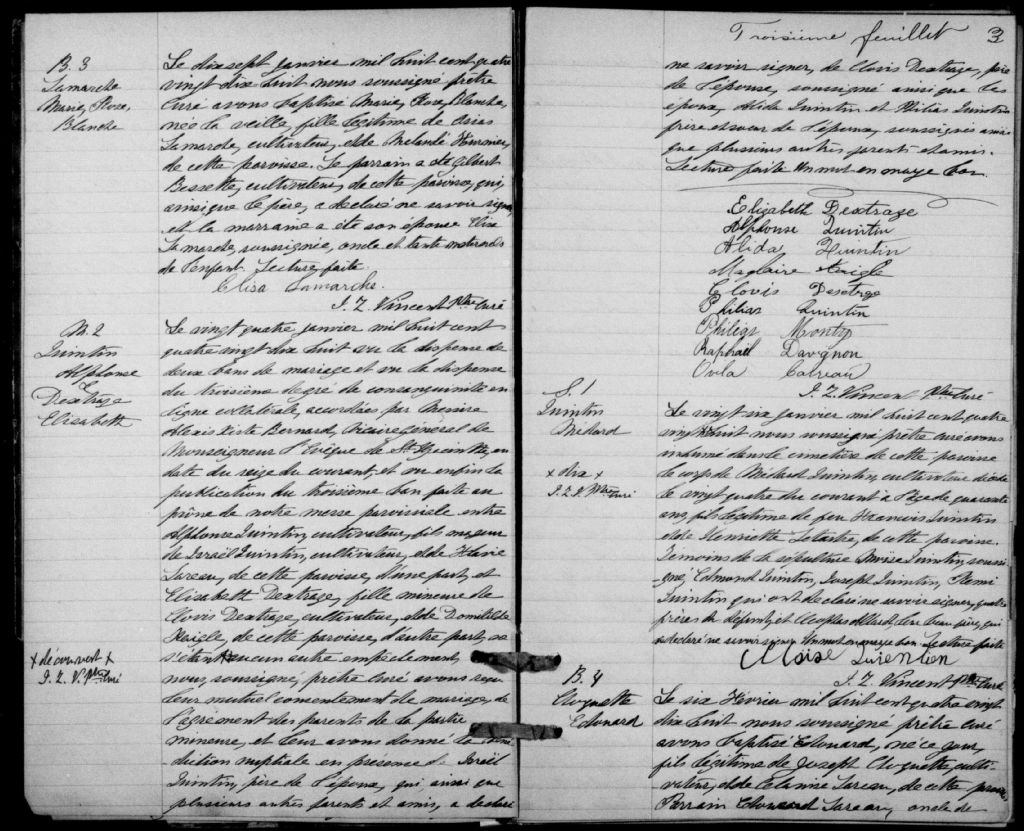 B. 3
Lamarche
Marie, Rose,
Blanche
Le dix sept janvier mil huit cent quatre
vingt dix huit nous soussigné prêtre
curé avons baptisé Marie, Rose, Blanche,
née la veille, fille légitime de Osias
Lamarche, cultivateur, et de Mélanie
de cette paroisse. Le parrain a été Gilbert
Bessette, cultivateur, de cette paroisse, qui,
ainsi que le père, a déclaré ne savoir signer
et la marraine a été son épouse Elisa
Lamarche, soussignée, oncle et tante maternels
de l'enfant. Lecture faite
Elisa Lamarche.
J. Z. Vincent Ptre curé
M. 2
Quintin
Alphonse
&
Dextraze
Elisabeth
Le vingt quatre janvier mil huit cent
quatre vingt dix huit vu la dispense de
deux bans de mariage et vu la dispense
du troisième degré de consanguinité en
ligne collatérale, accordées par Messire
Alexis Xiste Bernard, Vicaire général de
Monseigneur l'Evêque de St Hyacinthe, en
date du seize du courant, et vu enfin la
publication du troisième ban faite au
prône de notre messe paroissiale entre
Alphonse Quintin, cultivateur, fils majeur
de Israël Quintin, cultivateur, et de Flavie
Sareau, de cette paroisse, d'une part, et
Elisabeth Dextraze, fille mineure de
Clovis Dextraze, cultivateur, et de Domitilde
Daigle, de cette paroisse, d'autre part, ne
s'étant x aucun autre empêchement,
nous, soussigné, prêtre curé avons reçu
leur mutuel consentement de mariage, de
l'agrément des parents de la partie
mineure, et leur avons donné la béné-
diction nuptiale en présence de Israël
Quintin, père de l'époux, qui ainsi que
plusieurs autres parents et amis, a déclaré
x découvert x
J. Z. V. Ptre curé
Troisième feuillet 3
ne savoir signer, de Clovis Dextraze, père
de l'épouse, soussigné ainsi que les
époux, Alida Quintin et Philias Quintin
frère et sœur de l'époux, soussignés ainsi
que plusieurs autres parents et amis.
Lecture faite Un mot en marge bon.
Elizabeth Dextraze
Alphonse Quintin
Alida Quintin
Daigle
Clovis Dextraze
Philias Quintin
Monty
Raphaël Davignon
Ovila
J. Z. Vincent Ptre curé
S. 1
Quintin
Médard
x dix x
J. Z. V. Ptre curé
Le vingt six janvier mil huit cent quatre
vingt x huit nous soussigné prêtre curé avons
inhumé dans le cimetière de cette paroisse
le corps de Médard Quintin, cultivateur décédé
le vingt quatre du courant à l'âge de quarante
ans, fils légitime de feu François Quintin
et de Henriette de cette paroisse.
Témoins de la sépulture Moïse Quintin, soussi-
-gné, Edmond Quintin, Joseph Quintin, Rémi
Quintin qui ont déclaré ne savoir signer, quatre
frères du défunt, et Cléophas Allard, son beau-père, qui
a déclaré ne savoir signer Un mot en marge bon Lecture faite
Moïse Quientien
J. Z. Vincent Ptre curé
B. 4
Cloquette
Edouard
Le six Février mil huit cent quatre vingt
dix huit nous soussigné prêtre curé
avons baptisé Edouard, né ce jour,
fils légitime de Joseph Cloquette, culti-
vateur, et de Sareau, de cette paroisse
Parrain Edouard Sareau, oncle de